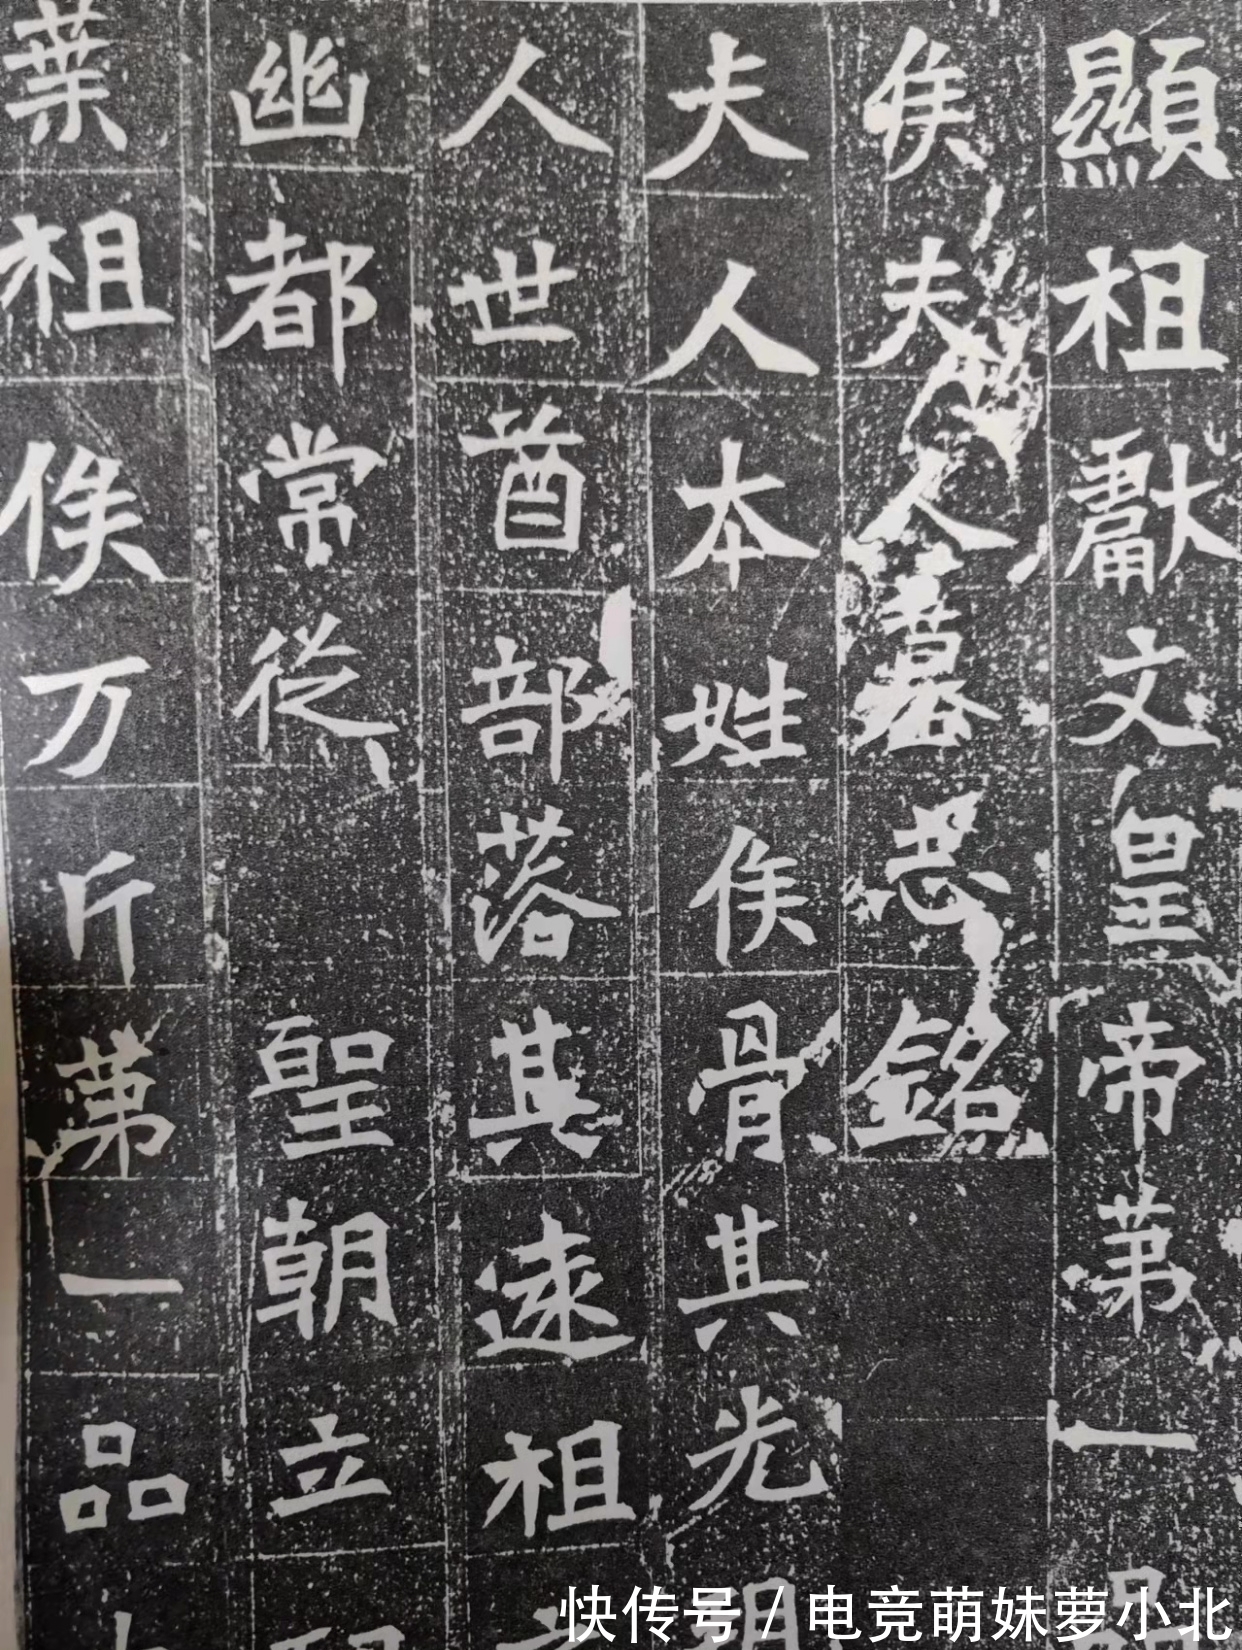 顯祖獻文皇帝第一品
侯夫人墓志銘
夫人本姓侯骨其先朔
人世酋部落其遠祖
幽都常從聖朝立
葉祖俟万斤第一品
快传号 / 电竞萌妹萝小北